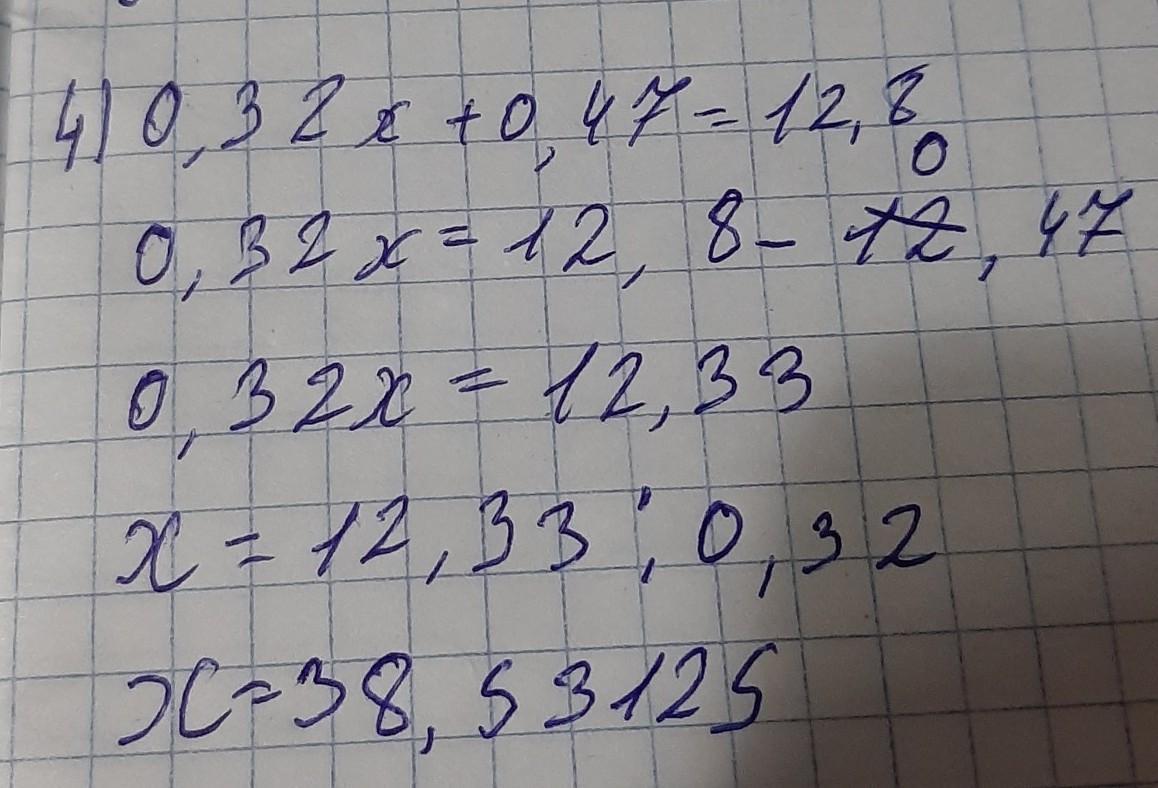 4) 0,32x+0,47=12,8
0,32x=12,8-0,47
0,32x=12,33
x=12,33:0,32
x=38,53125